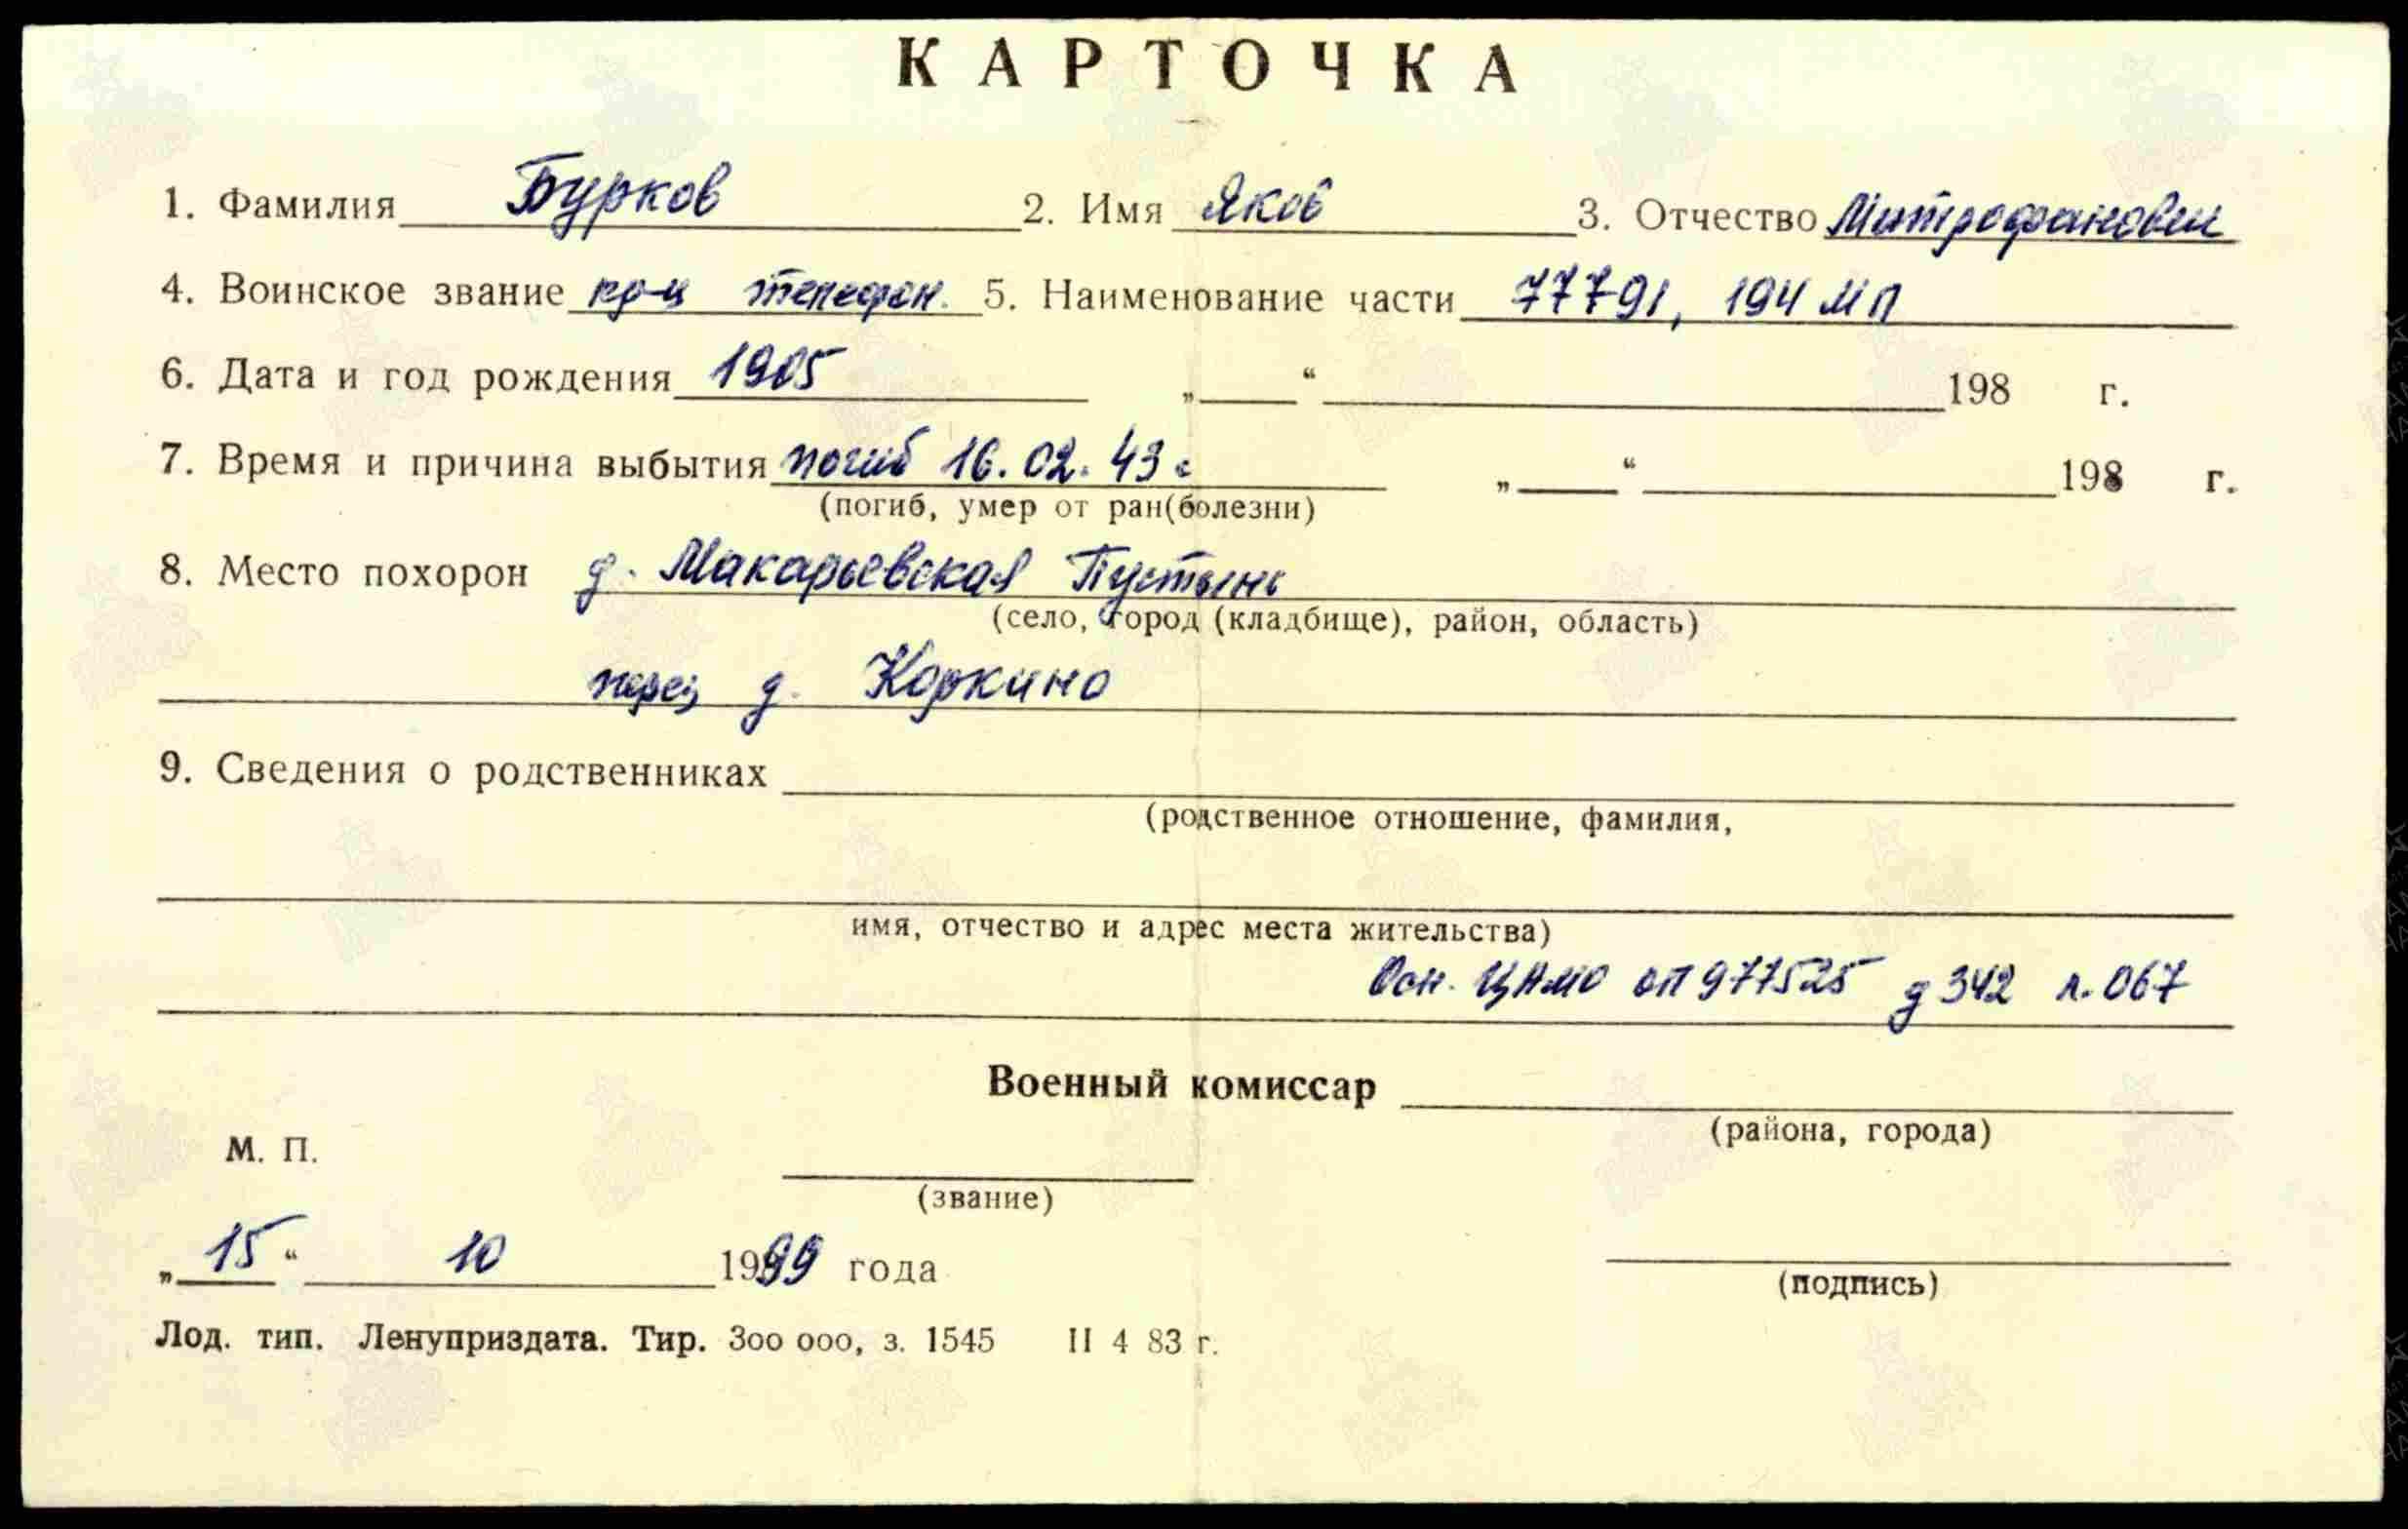 КАРТОЧКА
1. Фамилия Бурков 2. Имя Яков 3. Отчество Митрофанович
4. Воинское звание кр-ц телефон. 5. Наименование части 77791, 194 МП
6. Дата и год рождения 1905 „ “ 198 г.
7. Время и причина выбытия погиб 16.02.43 г „ “ 198 г.
(погиб, умер от ран(болезни)
8. Место похорон д. Макарьевская Пустынь
(село, город (кладбище), район, область)
перез д. Коркино
9. Сведения о родственниках
(родственное отношение, фамилия,
имя, отчество и адрес места жительства)
Осн. ЦАМО оп 977525 д 342 л. 067
Военный комиссар
(района, города)
М. П.
(звание)
„15“ 10 1999 года
(подпись)
Лод. тип. Ленуприздата. Тир. 300 000, з. 1545 II 4 83 г.